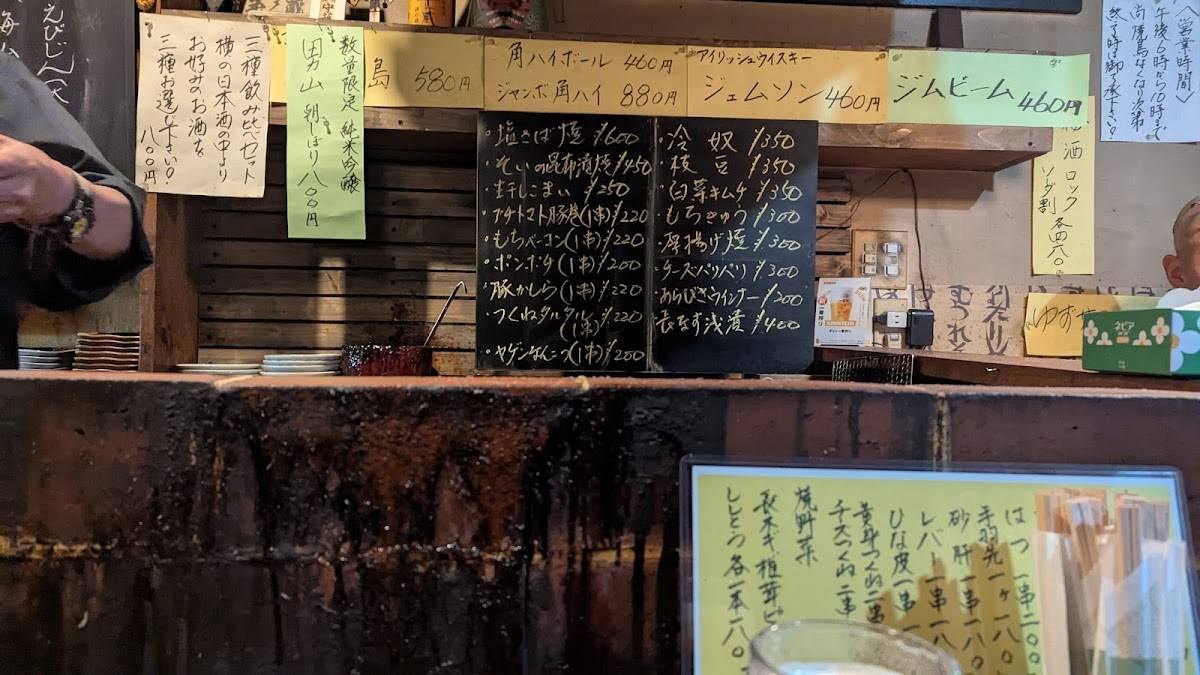 えびじん天
三種飲み比べセット
横の日本酒の中より
お好みのお酒を
三種お選び下さい!
八〇〇円
数量限定 純米吟醸
男山 朝しぼり 八〇〇円
島 580円
角ハイボール 460円
ジャンボ角ハイ 880円
アイリッシュウイスキー
ジェムソン 460円
ジムビーム 460円
〈営業時間〉
午後6時から10時まで
尚焼鳥なくなり次第
終了時は御了承下さい。
酒 ロック
ソーダ割 各四八〇
・塩さば焼 ¥600
・そいの昆布漬焼 ¥450
・生干しこまい ¥250
・プチトマト豚巻(1串)¥220
・もちベーコン(1串)¥220
・ボンボチ(1串)¥200
・豚かしら(1串)¥220
・つくねタルタル
(1串)¥220
・ヤゲンなんこつ(1串)¥200
・冷 奴 ¥350
・枝 豆 ¥350
・白菜キムチ ¥350
・もちきゅう ¥300
・厚揚げ焼 ¥300
・チーズパリパリ ¥300
・あらびきウインナー ¥200
・長なす浅漬 ¥400
一番搾り
ゆず
ネピア
はつ 一串二〇〇
手羽先 一ヶ一八〇
砂肝 一串一八〇
レバー 一串一八
ひな皮 一串一
黄身つくね 二串
チーズつくね 二串
焼野菜
長ネギ 椎茸 ピ
ししとう 各一本一八〇